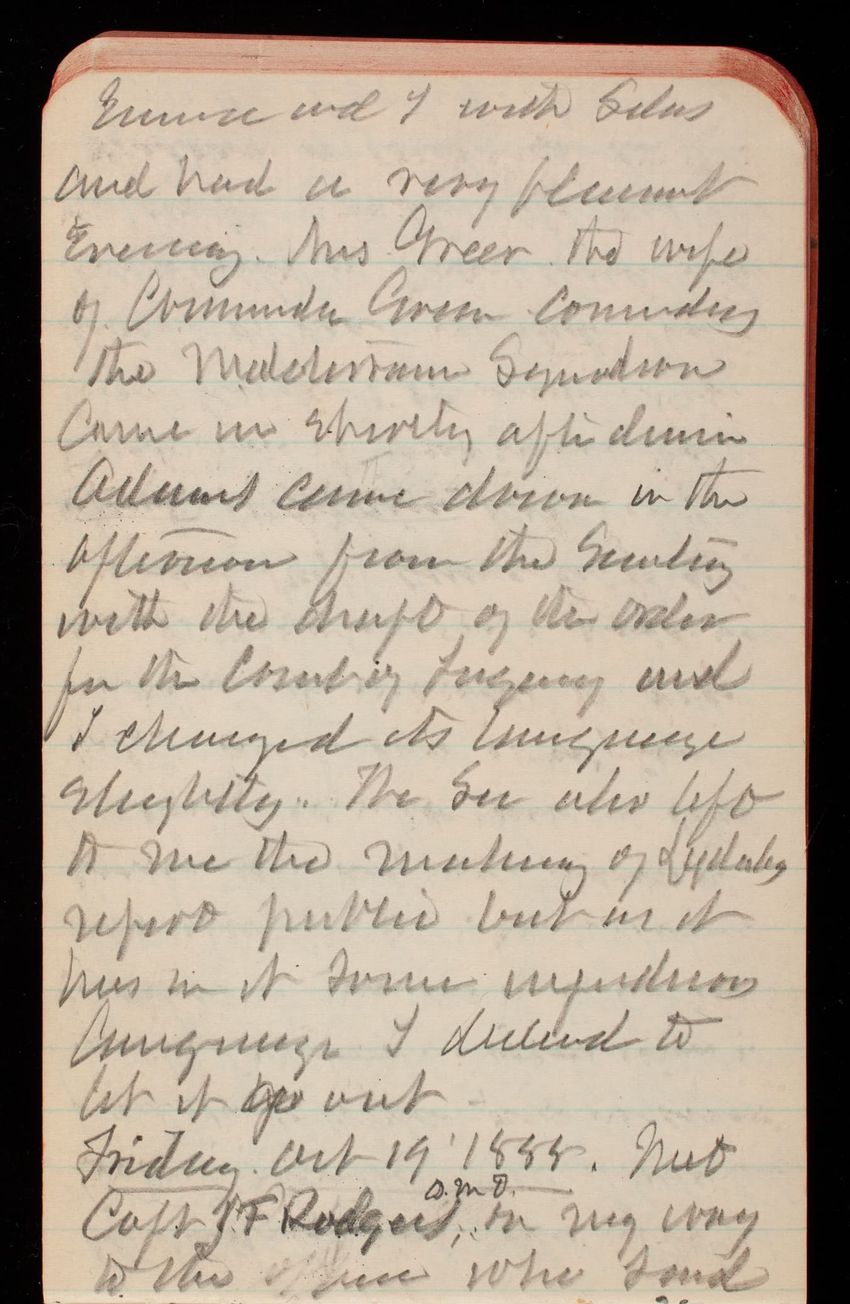 and I with Silas
and had a very pleasant
Evening. Mrs Greer the wife
of Commander Greer comanding
the Mediterranean Squadron
Came in shortly after dinner
Adams came down in the
afternoon from the Secretary
with the draft of the order
for the Court of Inquiry and
I changed its language
slightly. The Sec also left
to me the making of Lydeckers
report public but as it
has in it some injudicious
language I declined to
let it go out
Friday. Oct 19 1888. Met
Capt J F Rodgers, A.M.D. on my way
to the office who said